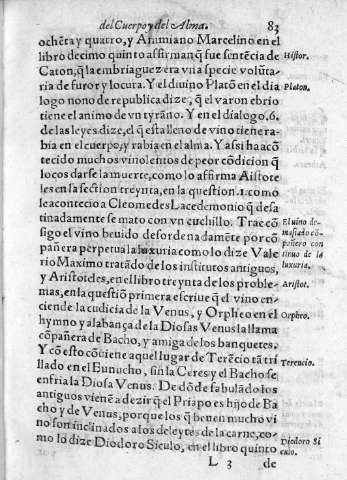 del Cuerpo y del Alma. 83
ochẽta y quatro, y Ammiano Marcelino en el
libro decimo quinto affirman q̃ fue sentẽcia de
Caton, q̃ la embriaguez era vna specie volũta-
ria de furor y locura. Y el diuino Platõ en el dia
logo nono de republica dize, q̃ el varon ebrio
tiene el animo de vn tyrãno. Y en el dialogo .6.
de las leyes dize, el q̃ esta lleno de vino tiene ra-
bia en el cuerpo, y rabia en el alma. Y assi ha acõ
tecido muchos vinolentos de peor cõdicion q̃
locos darse la muerte, como lo affirma Aristote
les en la section treynta, en la question .1. como
le acontecio a Cleomedes Lacedemonio q̃ desa
tinadamente se mato con vn cuchillo. Trae cõ
sigo el vino beuido desordenadamẽte por cõ
pañera perpetua la luxuria como lo dize Vale
rio Maximo tratãdo de los institutos antiguos,
y Aristoteles, en el libro treynta de los proble-
mas, en la questiõ primera escriue q̃ el vino en-
ciende la cudicia de la Venus, y Orpheo en el
hymno y alabança de la Diosas Venus la llama
cõpañera de Bacho, y amiga de los banquetes.
Y cõ esto cõuiene aquel lugar de Terẽcio tã tri
llado en el Eunucho, sin la Ceres y el Bacho se
enfria la Diosa Venus. De dõde fabulãdo los
antiguos vienẽ a dezir q̃ el Priapo es hijo de Ba
cho y de Venus, porque los q̃ beuen mucho vi
no son inclinados a los deleytes de la carne, co-
mo lo dize Diodoro Siculo, en el libro quinto
L 3 de
Histor.
Platon.
El uino de-
masiado cõ-
pañero con
tinuo de la
luxuria.
Aristot.
Orpheo.
Terencio.
Diodoro Si
culo.